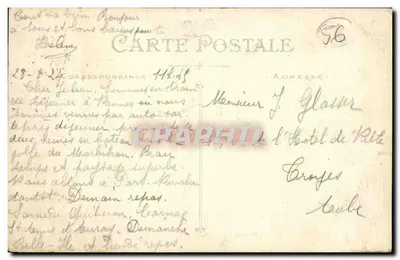 Bonjour
à tous et bons baisers pour
Hélène
56
CARTE POSTALE
CORRESPONDANCE
ADRESSE
11h
Cher Julien, sommes en train
de déjeuner à Vannes où nous
sommes venus par auto car
le petit déjeuner
deux heures en bateau
golfe du Morbihan. Beau
temps et paysage superbe.
Nous allons à Port-Navalo
Demain repos.
Samedi Quiberon, Carnac
Ste Anne d'Auray. Dimanche
Belle-Ile et Lundi repos.
Monsieur J Glasser
de l'Hôtel de Ville
Troyes
Aube